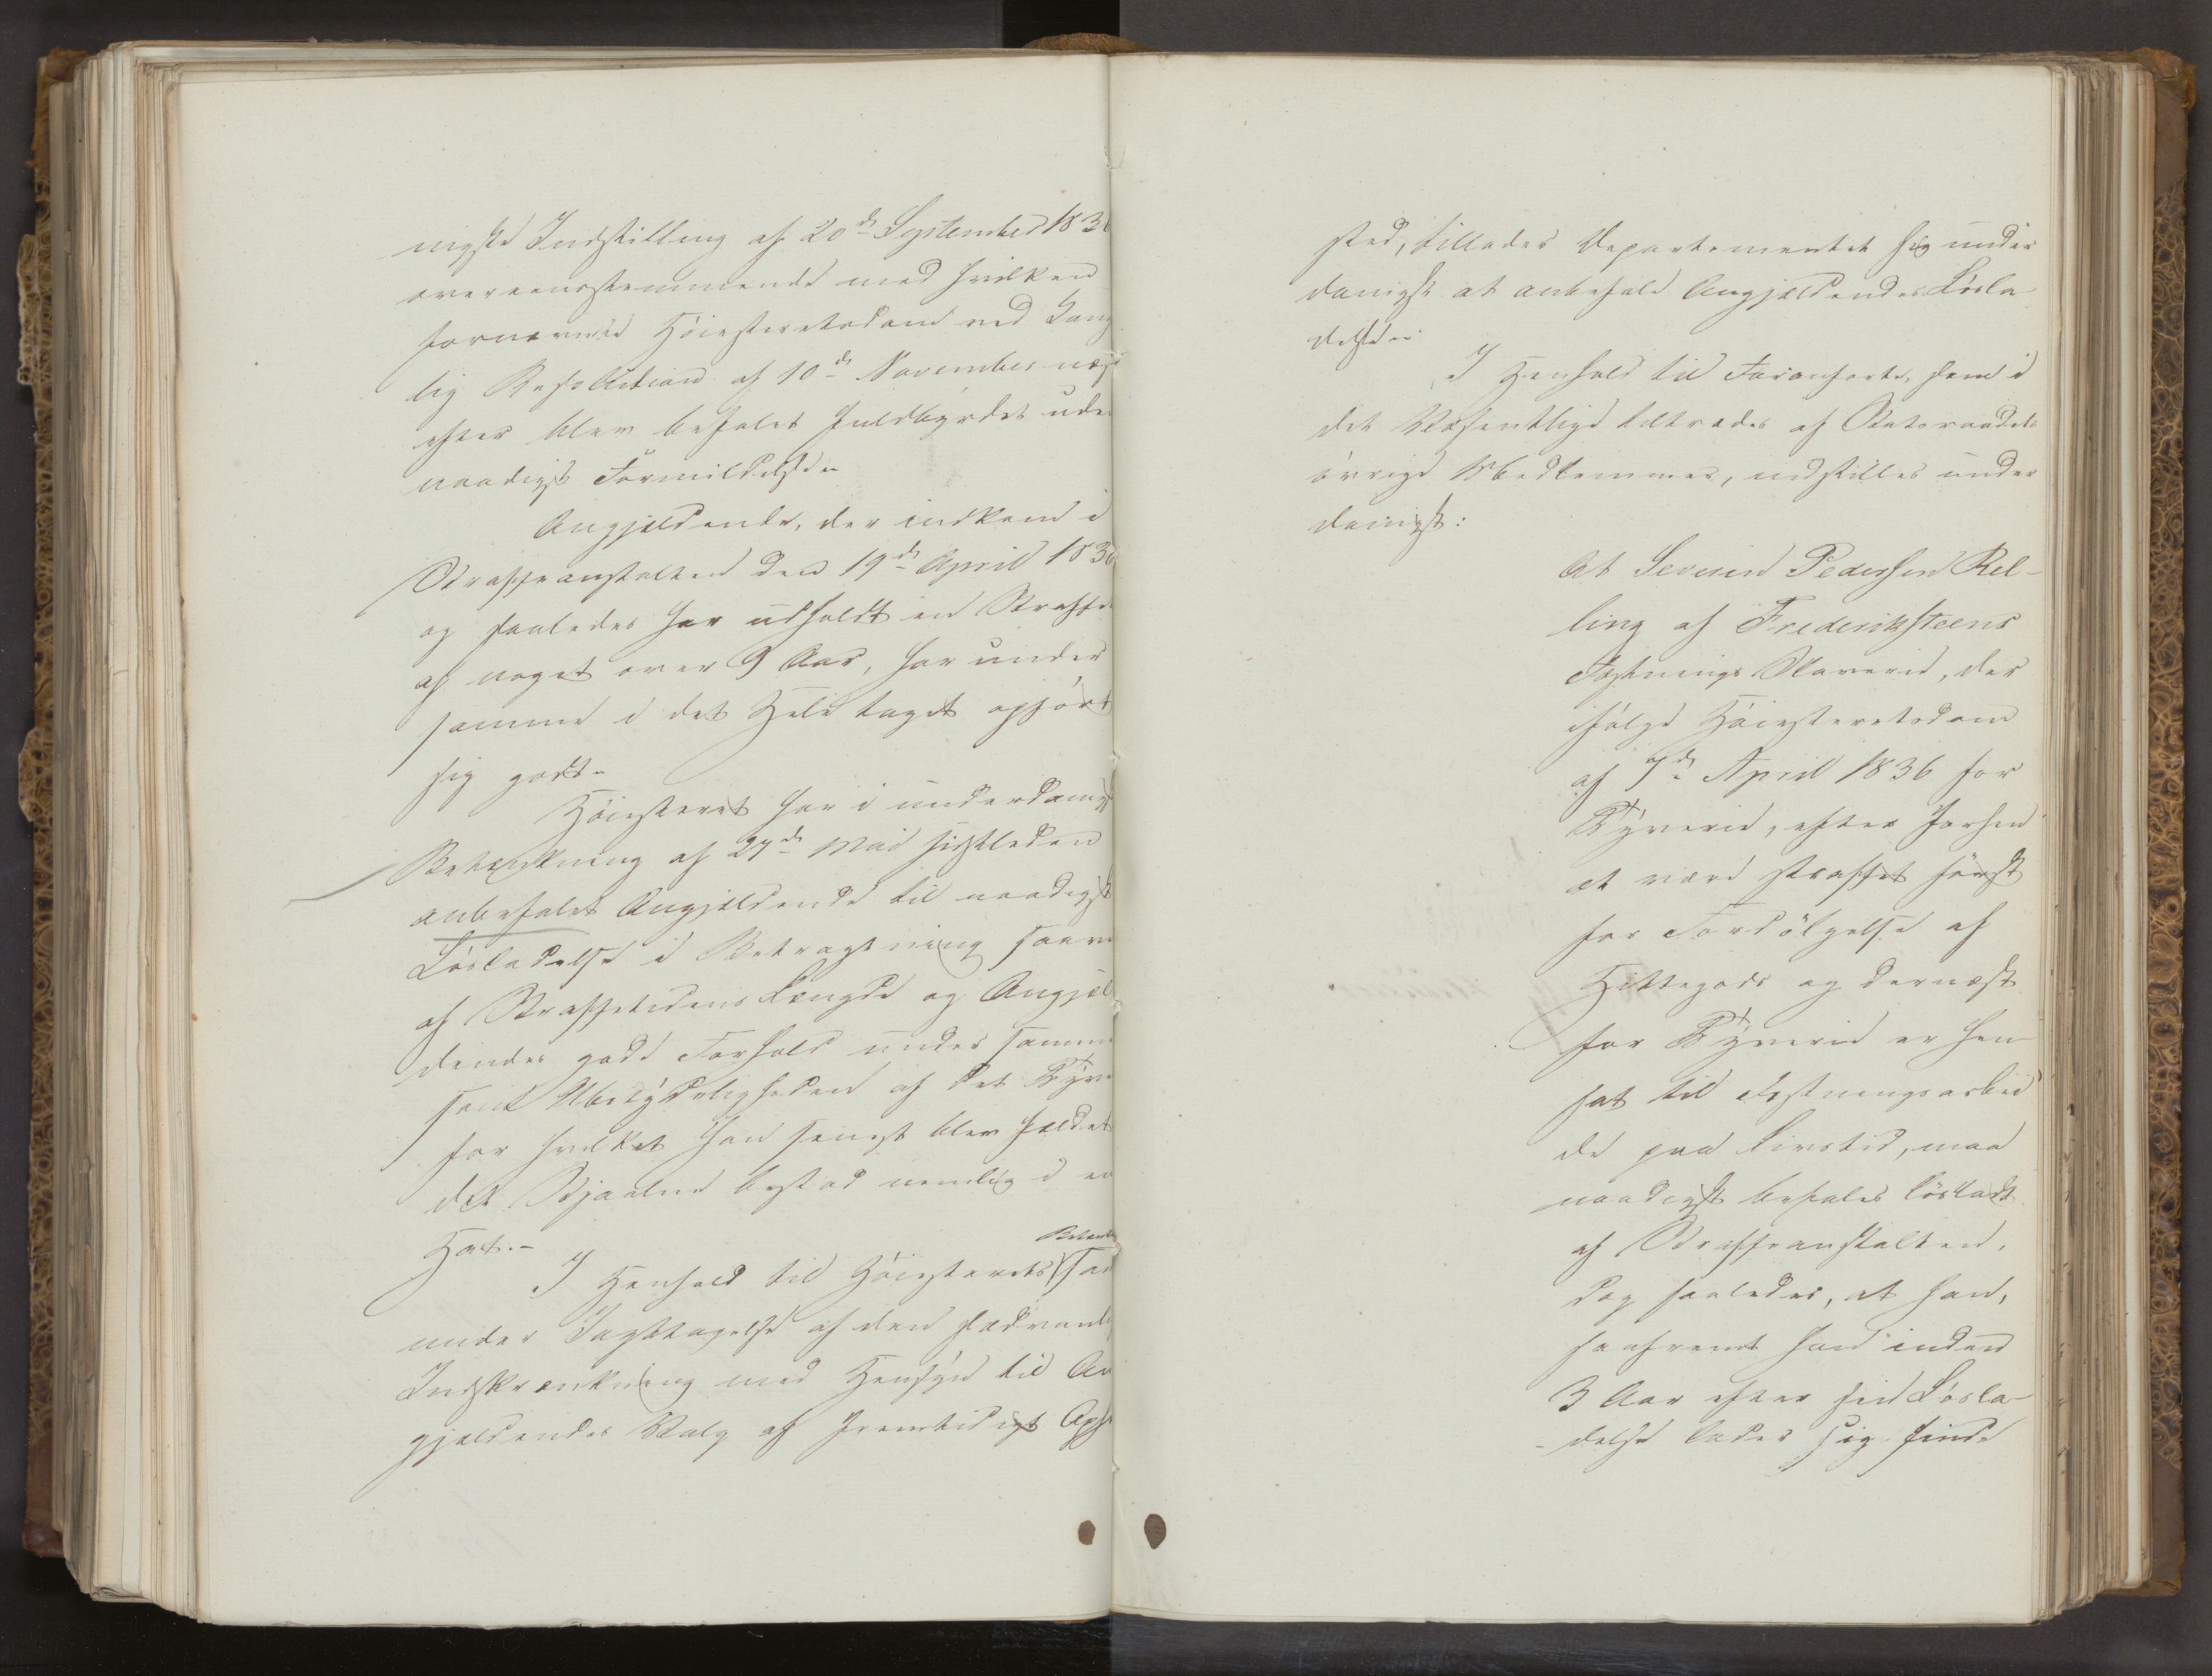 nigste Indstilling af 20de September 1836
overeensstemmende med hvilken
fornævnte Höiesteretsdom ved Konge
lig Resolution af 10de November næst
efter blev befalet fuldbyrdet uden
naadigst Formildelse.
Angjeldende, der indkom i
Strafanstalten den 19de April 1836
og saaledes har udholdt en Straffe
af noget over 9 Aar, har under
samme i det Hele taget opført
sig godt.
Höiesteret har i underdanigst
Betænkning af 27de Mai sidstleden
anbefalet Angjeldende til naadigst
Lösladelse i Betragtning saavel
af Straffetidens Længde og Angjel
dendes gode Forhold under samme
som Ubetydeligheden af det Tyve
for hvilket han senest blev fældet
det Stjaalne bestod nemlig i en
Hat.-
Betænk
I Henhold til Höiesterets sam
under Iagttagelse af den sædvanl
Indskrænkning med Hensyn til An
gjeldendes Valg af fremtidigt Opholds
sted, tillader Departementet sig under
danigst at anbefale Angjeldendes Lösla
delse.
I Henhold til Foranførte, som i
det Væsentlige tiltrædes af Statsraadets
övrige Medlemmer, indstilles under
danigst:
At Severin Pedersen Rel-
ling af Frederikssteens
Fæstnings Slaverie, der
ifölge Höiesteretsdom
af 7de April 1836 for
Tyverie, efter forhen
at være straffet först
for Fordölgelse af
Hittegods og dernæst
for Tyverie er hen
sat til Fæstningsarbei
de paa Livstid, maa
naadigst befales lösladt
af Strafanstalten,
dog saaledes, at han,
saafremt han inden
3 Aar efter sin Lösla-
delse lader sig finde